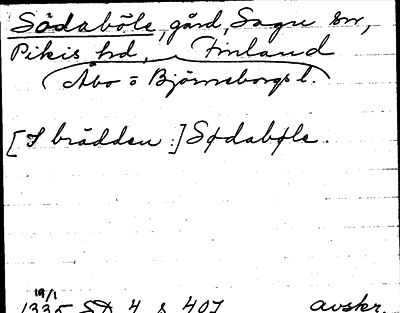 Södaböle, gård, Sagu sn,
Pikis hd, Finland
(Åbo o Björneborgs l.
[I brädden:] Sødabøle.
19/1
1335 SD 4 s 407 avskr.